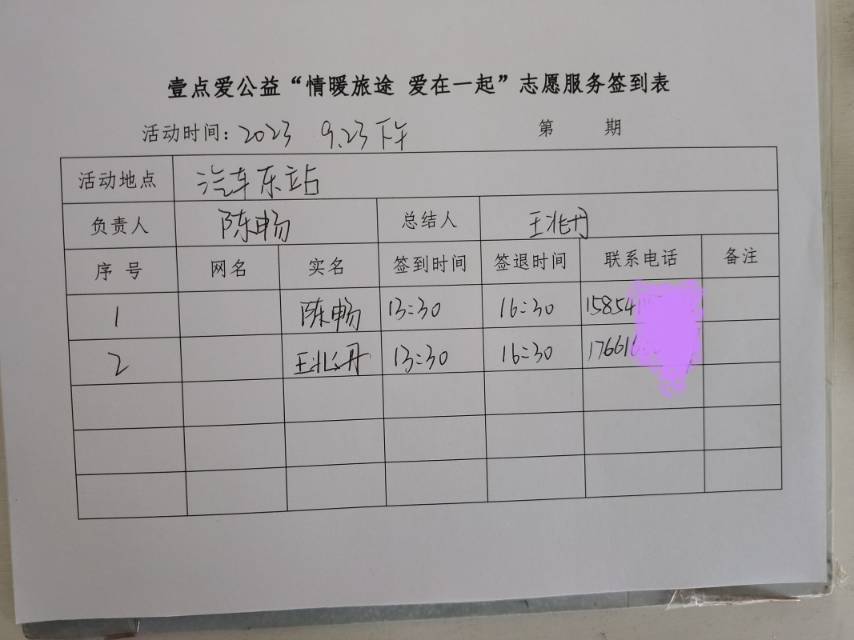 壹点爱公益“情暖旅途 爱在一起”志愿服务签到表
活动时间: 2023 9.23下午 第 期
活动地点 汽车东站
负责人 陈畅 总结人 王兆丹
序号 网名 实名 签到时间 签退时间 联系电话 备注
1 陈畅 13:30 16:30 15854
2 王兆丹 13:30 16:30 17661